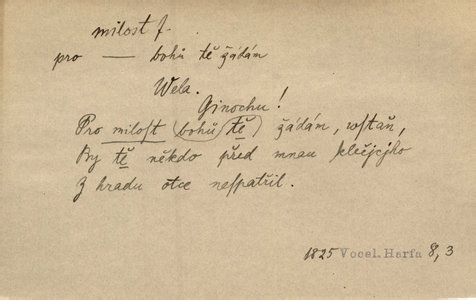 milost f.
pro — bohů tě žádám
Wela.
Ginochu!
Pro milost (bohů (tě) žádám, wstaň,
By tě někdo před mnau klečjcjho
Z hradu otce nespatřil.
1825 Vocel. Harfa 8, 3